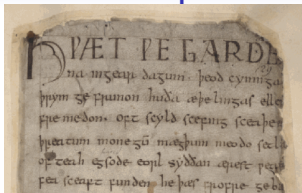 HǷÆT ǷE GARDE
na ingear dagum. þeod cyninga
þrym ge frunon huða æþelingas elle
fre medon. oft scyld scefing sceaþe
þreatum monegū mægþum meodo setla
of teah egsode eorl syððan ærest ƿea
feasceaft funden he þæs frofre geba